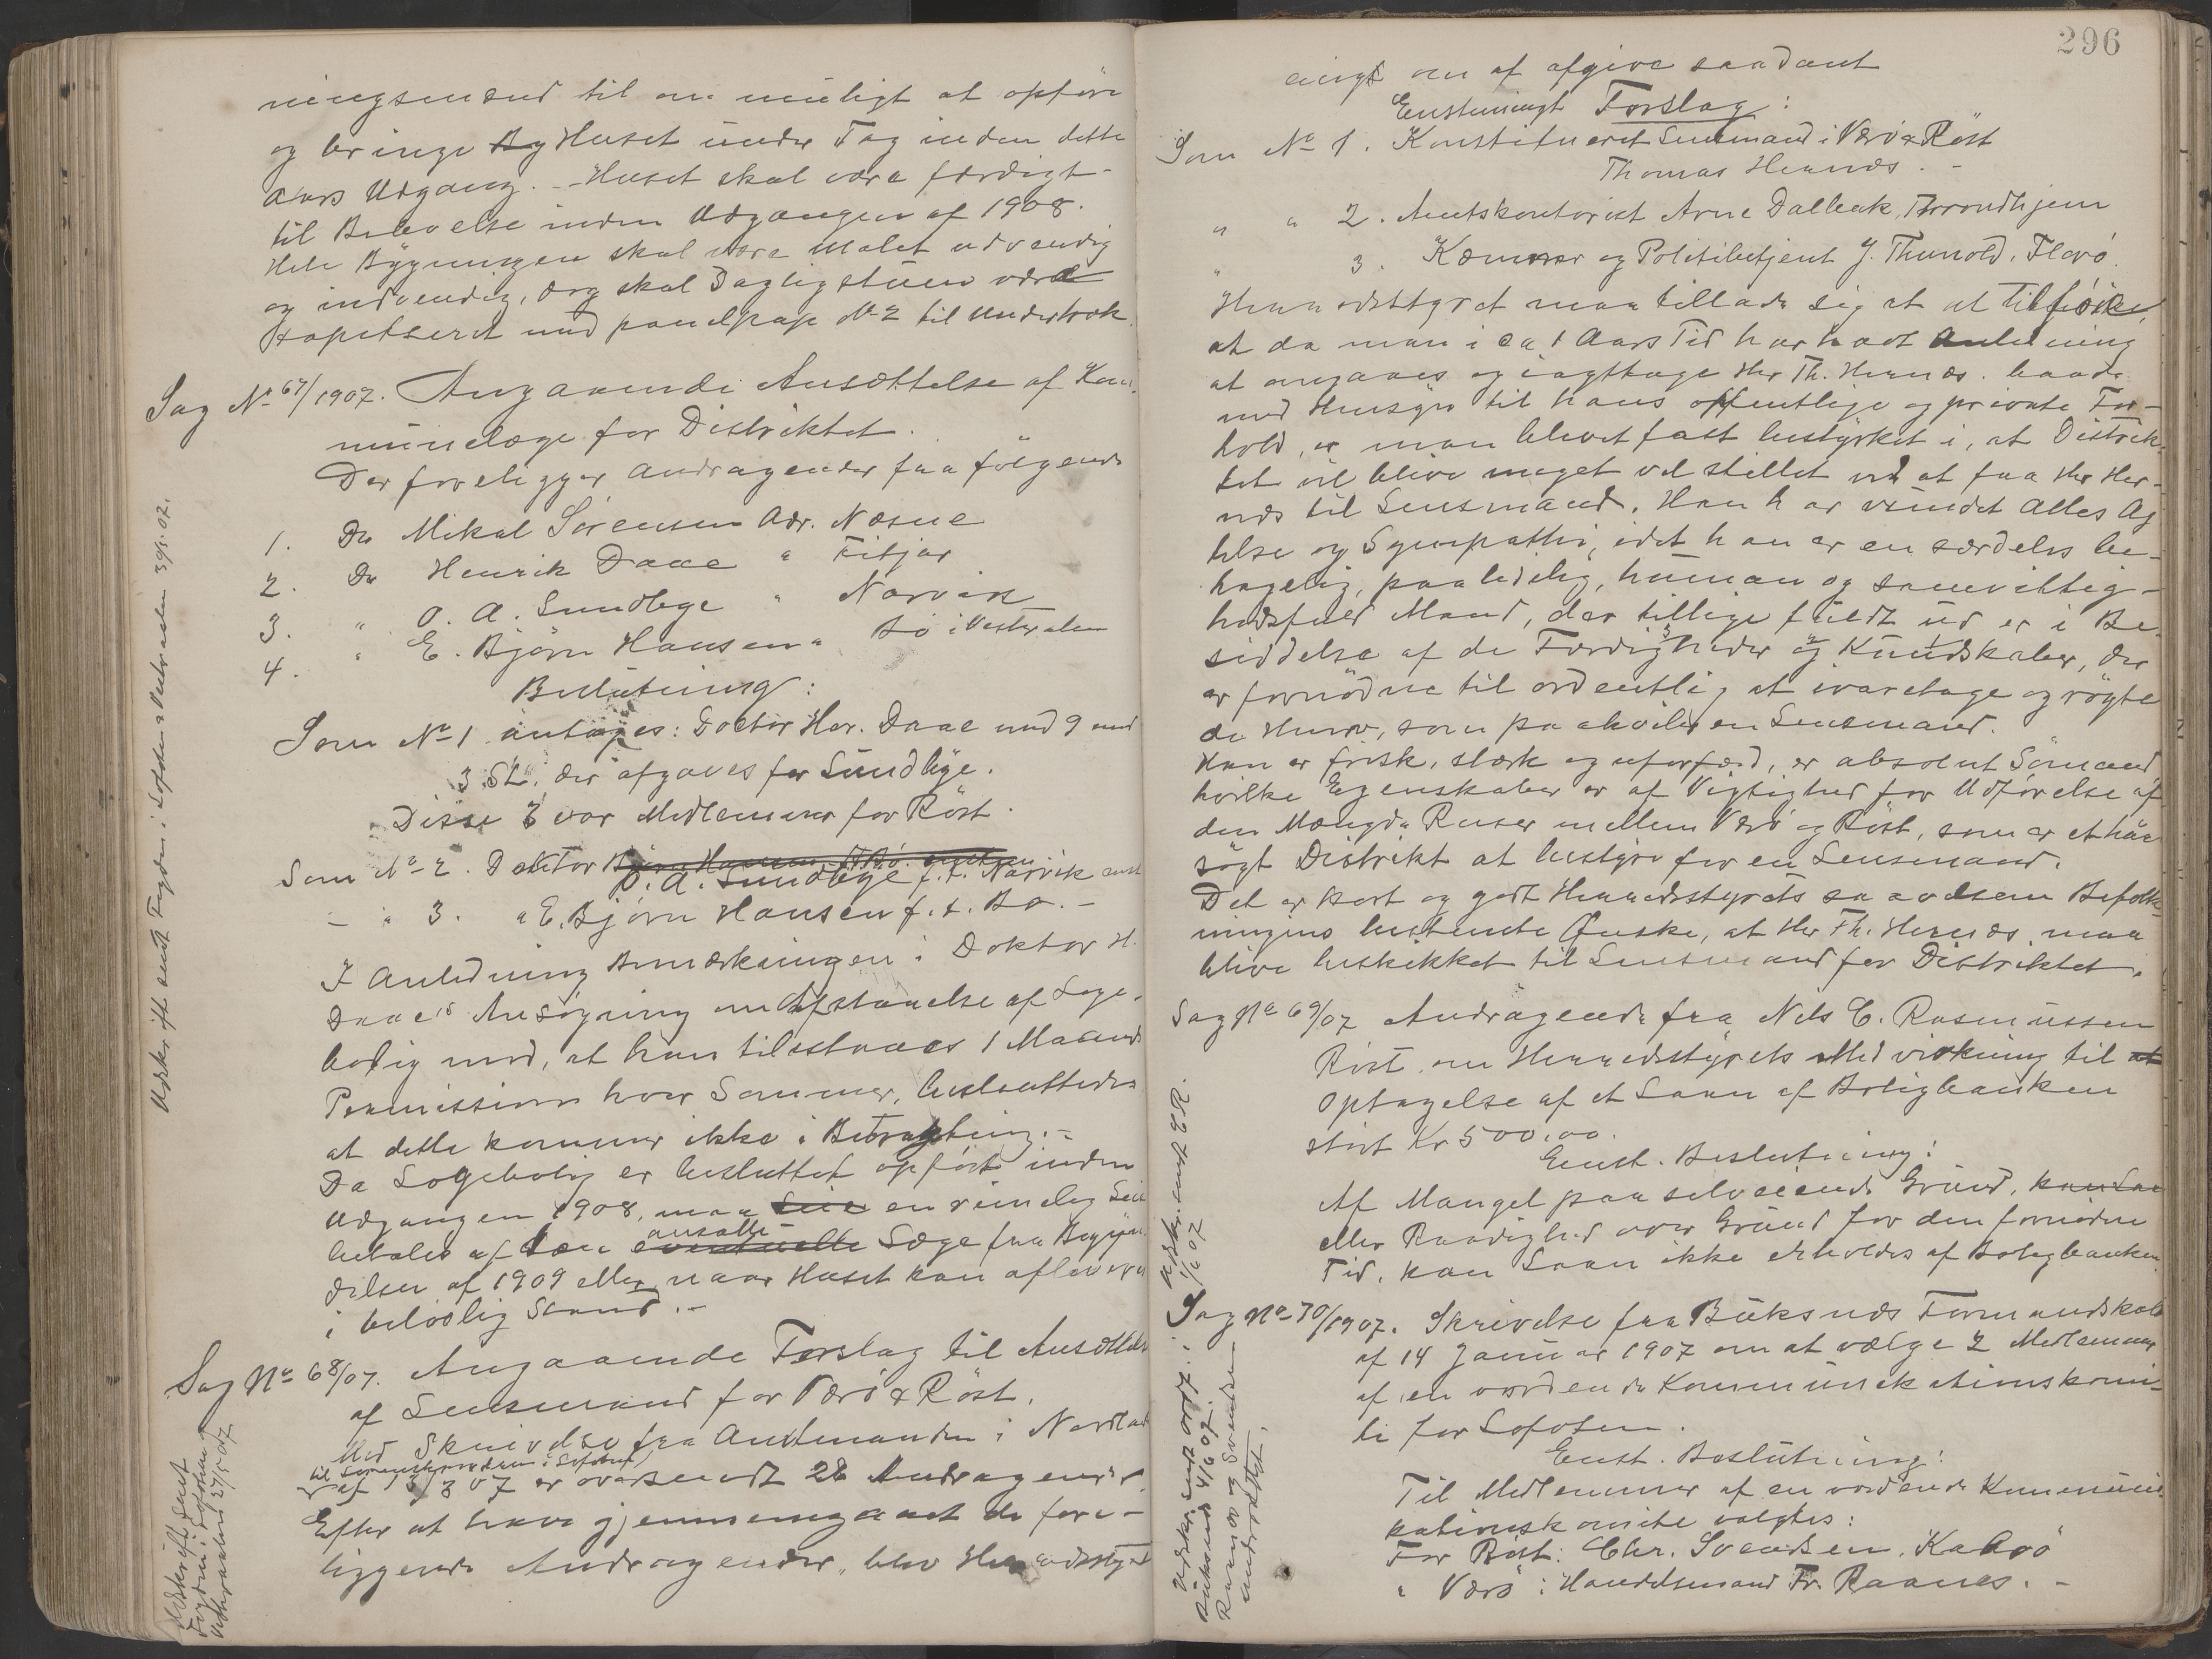 ningsmænd til om muligt at opføre
og bringe By Huset under Tag inden dette
Aars Udgang. – Huset skal være færdigt
til Beboelse inden Udgangen af 1908.
Hele Bygningen skal være malet udvendig
og indvendig, dog skal Dagligstuen være
tapetseret med panelpap No 2 til Undertræk.
Sag No 67/1907. Angaaende Ansættelse af Kom-
munelæge for Distriktet.
Der foreligger Andragender fra følgende
1. Dr Mikal Sörensen Adr. Næsne
2. Dr Henrik Daae " Fitjar
3. " O. A. Sundbye " Narvik
4. " E. Björn Hansen " Bö i Vesteraalen
Beslutning:
Som No 1 antages: Doctor Hr. Daae med 9 mod
3 St. der afgaves for Sundbye.
Disse 3 var Medlemmer for Röst.
Som No 2. Doktor Björn Hansen
O. A. Sundbye f. t. Narvik enst
– " 3. " E. Björn Hansen f. t. Bö. –
I Anledning Bemærkningen i Doktor H.
Daae's Ansögning om Afstaaelse af Læge-
bolig mod, at han tilstaaes 1 Maaneds
Permission hver Sommer, besluttedes
at dette kommer ikke i Betragtning. –
Da Lægebolig er besluttet opfört inden
Udgangen 1908, maa Leie en rimelig Leie
betales af den eventuelle ansatte Læge fra Begyn-
delsen af 1909 eller naar Huset kan afleveres
i beboelig Stand. –
Sag No 68/07. Angaaende Forslag til Ansættelse
af Lensmand for Værö & Röst.
Med Skrivelse fra Amtmanden i Nordland
til Sorenskriveren i Lofoten
af 3/3 07 er oversendt 28 Andragender.
Efter at have gjennemgaaet de fore-
liggende Andragender, blev Herredsstyret
Udskrift sendt Fogden i Lofoten & Vesteraalen 29/5. 07.
Udskrift sendt
Fogden i Lofoten &
Vesteraalen 27/5 07
296
enigt om at afgive saadant
Enstemmigt Forslag:
Som No 1. Konstitueret Lensmand i Værö & Röst
Thomas Hernæs. –
" " 2. Amtskontorist Arne Dalbak, Throndhjem
" 3. Kæmner og Politibetjent J. Thunold, Florö.
Herredsstyret maa tillade sig at at tilföie,
at da man i ca 1 Aars Tid har havt Anledning
at omgaaes og iagttage Hr Th. Hernæs. baade
med Hensyn til hans offentlige og private For-
hold, er man blevet fast bestyrket i, at Distrik-
tet vil blive meget vel stillet ved at faa Hr Her-
næs til Lensmand. Han har vundet Alles Ag-
telse og Sympathi, idet han er en særdeles be-
hagelig, paalidelig, human og samvittig-
hedsfuld Mand, der tillige fuldt ud er i Be-
siddelse af de Færdigheder og Kundskaber, der
er fornödne til ordentlig at ivaretage og rögte
de Hverv, som paahviler en Lensmand.
Han er frisk, stærk og uforfærd, er absolut Sömand
hvilke Egenskaber er af Vigtighed for Udförelse af
den Mængde Reiser mellem Værö og Röst, som er et haa-
sögt Distrikt at bestyre for en Lensmand.
Det er kort og godt Herredsstyrets saavelsom Befolk-
ningens bestemte Önske, at Hr Th. Hernæs maa
blive beskikket til Lensmand for Distriktet.
Sag No 69/07 Andragende fra Nils C. Rasmussen
Röst om Herredsstyrets Medvirkning til at
Optagelse af et Laan af Boligbanken
stort Kr 500,00.
Enst. Beslutning:
Af Mangel paa selveiende Grund, kan Laa
eller Raadighed over Grund for den fornödne
Tid, kan Laan ikke erholdes af Boligbanken.
Sag No 70/1907. Skrivelse fra Buksnæs Formandskab
af 14 Januar 1907 om at vælge 2 Medlemmer
af en vordende Kommunikationskomi-
te for Lofoten.
Enst. Beslutning:
Til Medlemmer af en vordende Kommuni-
kationskomite valgtes:
For Röst: Chr. Svendsen, Kaarö
" Værö: Handelsmand Fr. Raanes. –
Udskr. sendt N. R.
1/6 07
Udskr. sendt Ordf. i
Buksnæs 4/6 07.
Raanes og Svendsen
underrettet.